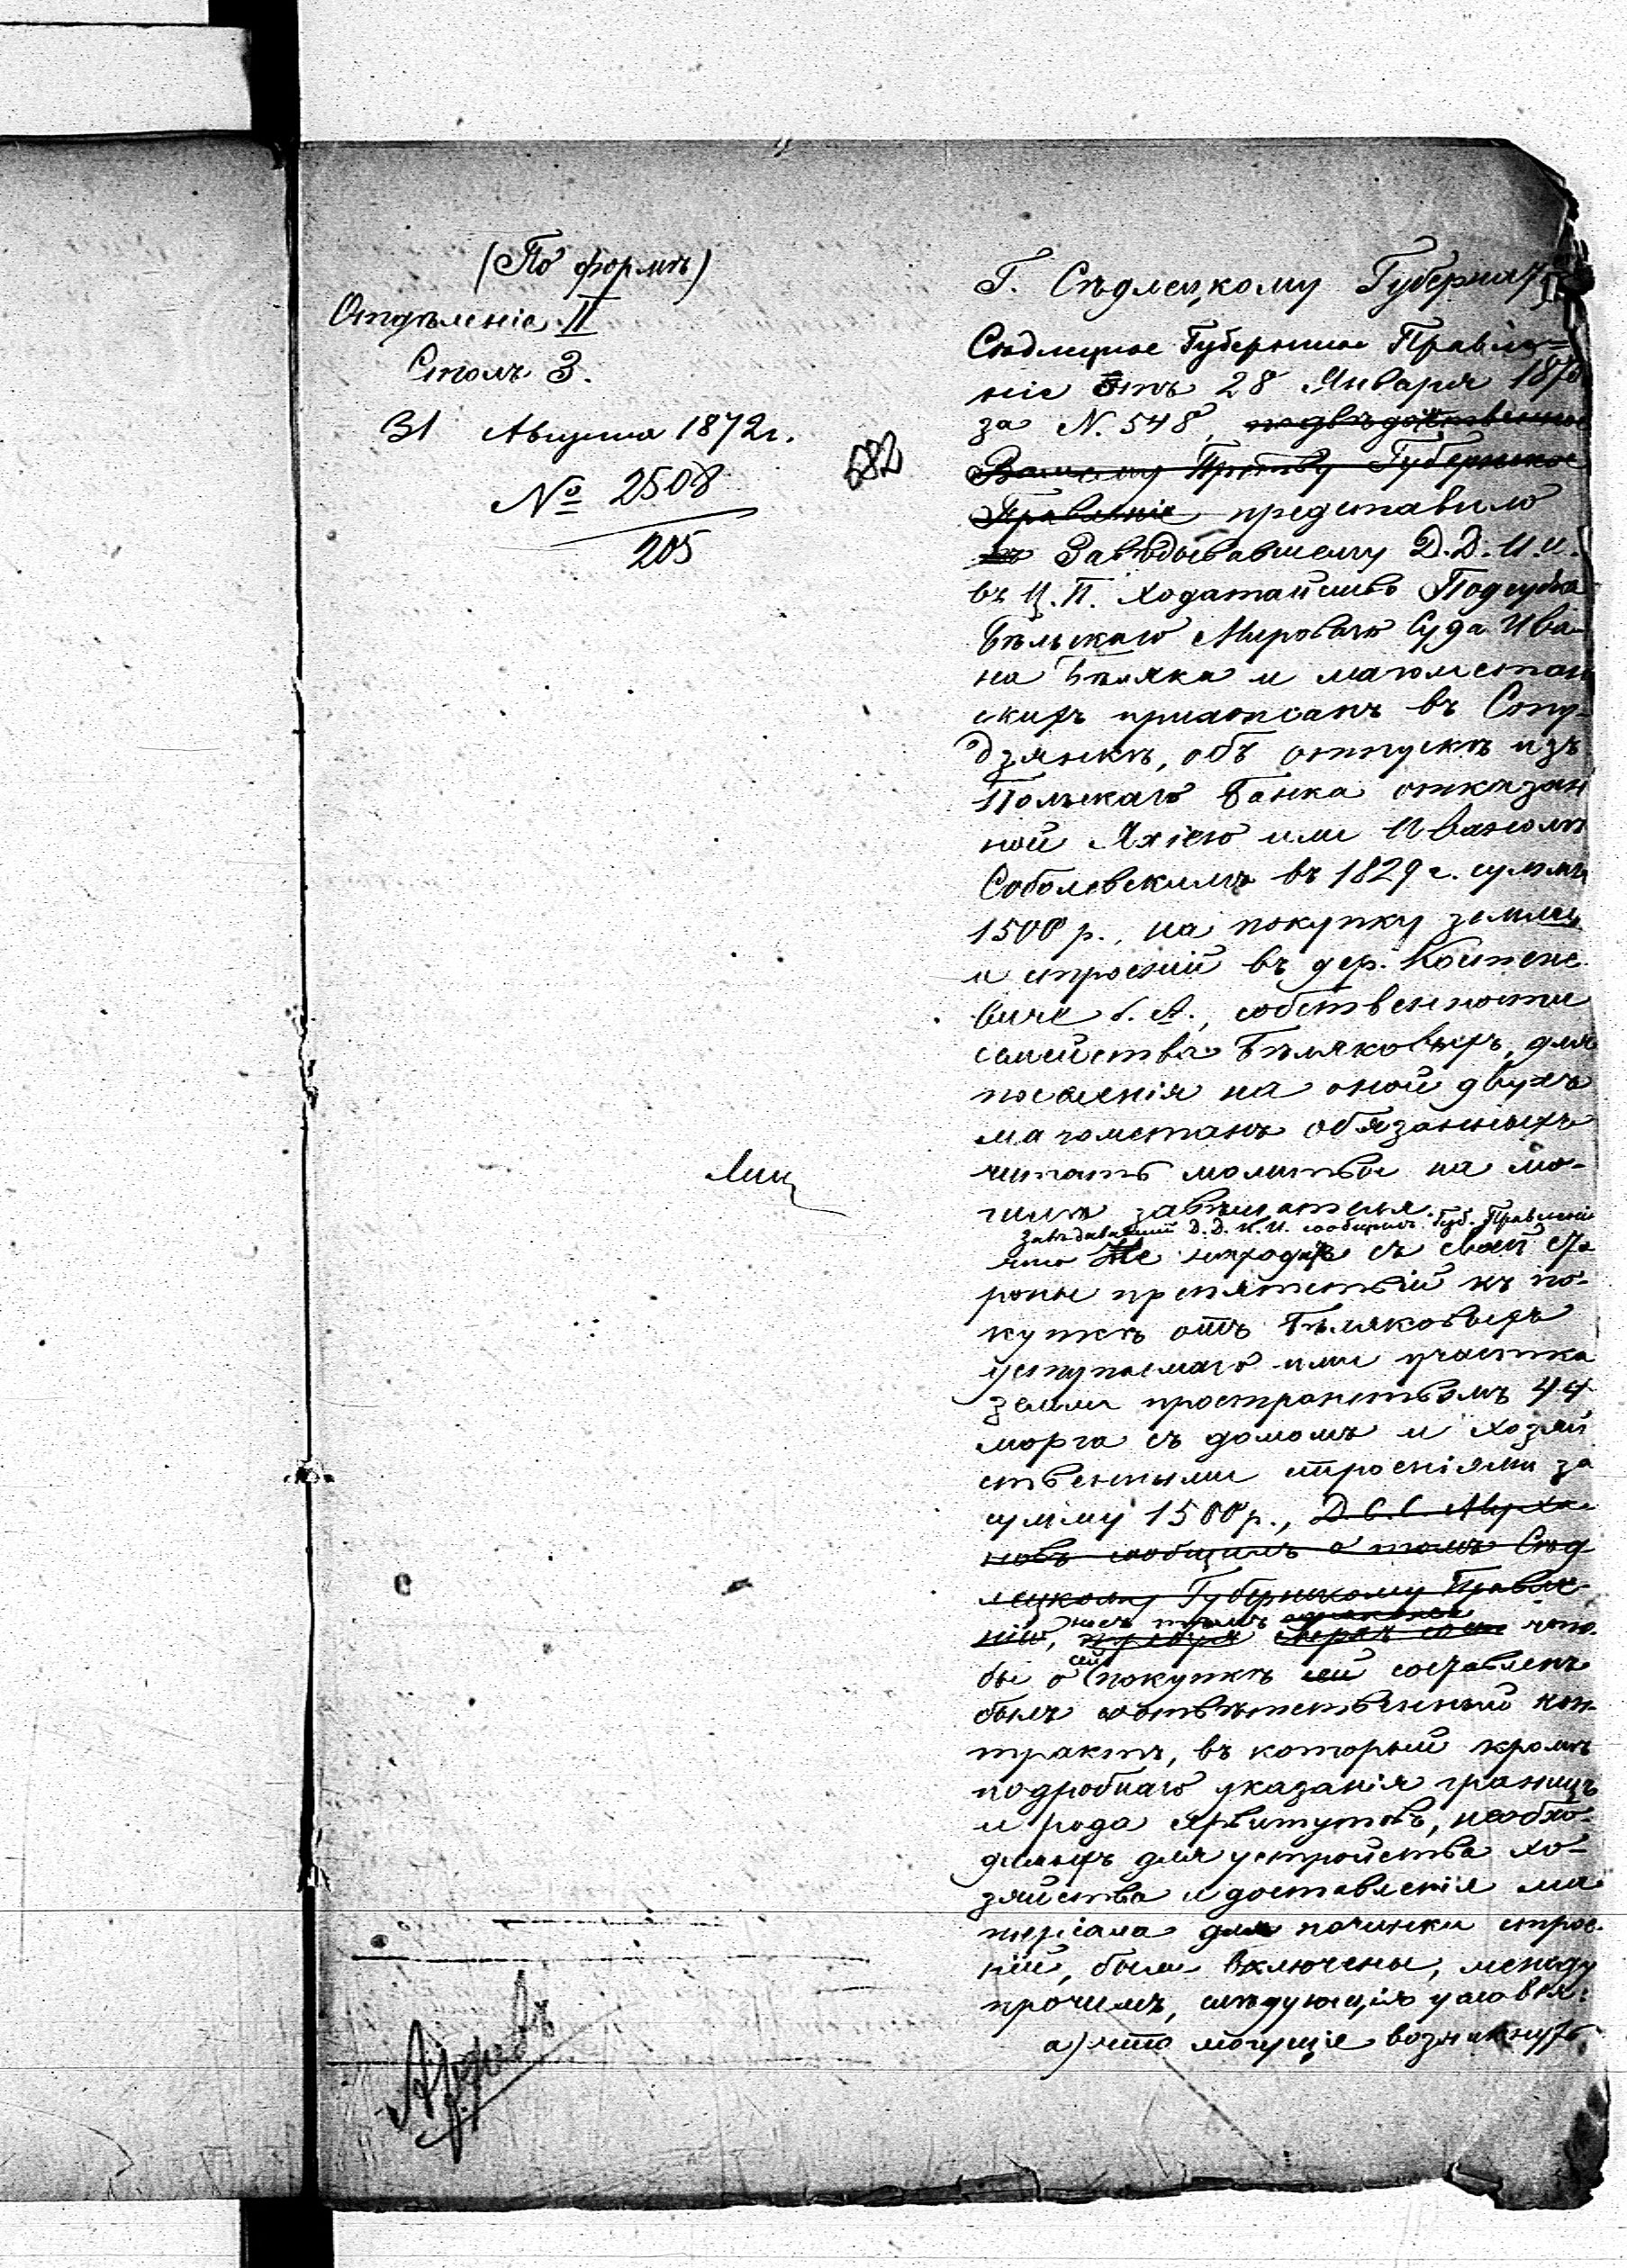 (По формѣ)
Отдѣленіе II
Столъ 3.
31 Августа 1872 г.
№ 2508
205
682
Г. Сѣдлецкому Губернат
Сѣдлецкое Губернское Правле-
ніе отъ 28 Января 1870
за N. 548, подвѣдомственное
Вашему Пр-ству Губернское
Правленіе представило
Завѣдывавшему Д. Д. И. И.
въ Ц. П. ходатайство Подсудка
Бѣльскаго Мироваго Суда Ива-
на Бѣляка и магометан
скихъ прихожанъ въ Сту-
дзянкѣ, объ отпускѣ изъ
Польскаго Банка отказан
ной Яхіею или Иваномъ
Соболевскимъ въ 1829 г. суммы
1500 р., на покупку земли
и строеній въ дер. Костене
виче л. А., собственности
семейства Бѣляковыхъ, для
поселенія на оной двухъ
магометанъ обязанныхъ
читать молитвы на мо-
гилѣ завѣщателя.
Завѣдывавшій Д. Д. И. И. сообщилъ Губ. Правленію
что не находитъ съ своей сто
роны препятствій къ по-
купкѣ отъ Бѣляковыхъ
уступаемаго ими участка
земли пространствомъ 44
морга съ домомъ и хозяй
ственными строеніями за
сумму 1500 р., Д. С. С. Муха
новъ сообщилъ о томъ Сѣд
лецкому Губернскому Правле-
нію, съ тѣмъ однако что-
бы о сей покупкѣ сей составленъ
былъ соотвѣтственный кон-
трактъ, въ который кромѣ
подробнаго указанія границъ
и рода сервитутовъ, необхо-
димыхъ для устройства хо-
зяйства и доставленія ма
теріала для починки строе-
ній, были включены, между
прочимъ, слѣдующія условія:
а) что могущіе возникнуть